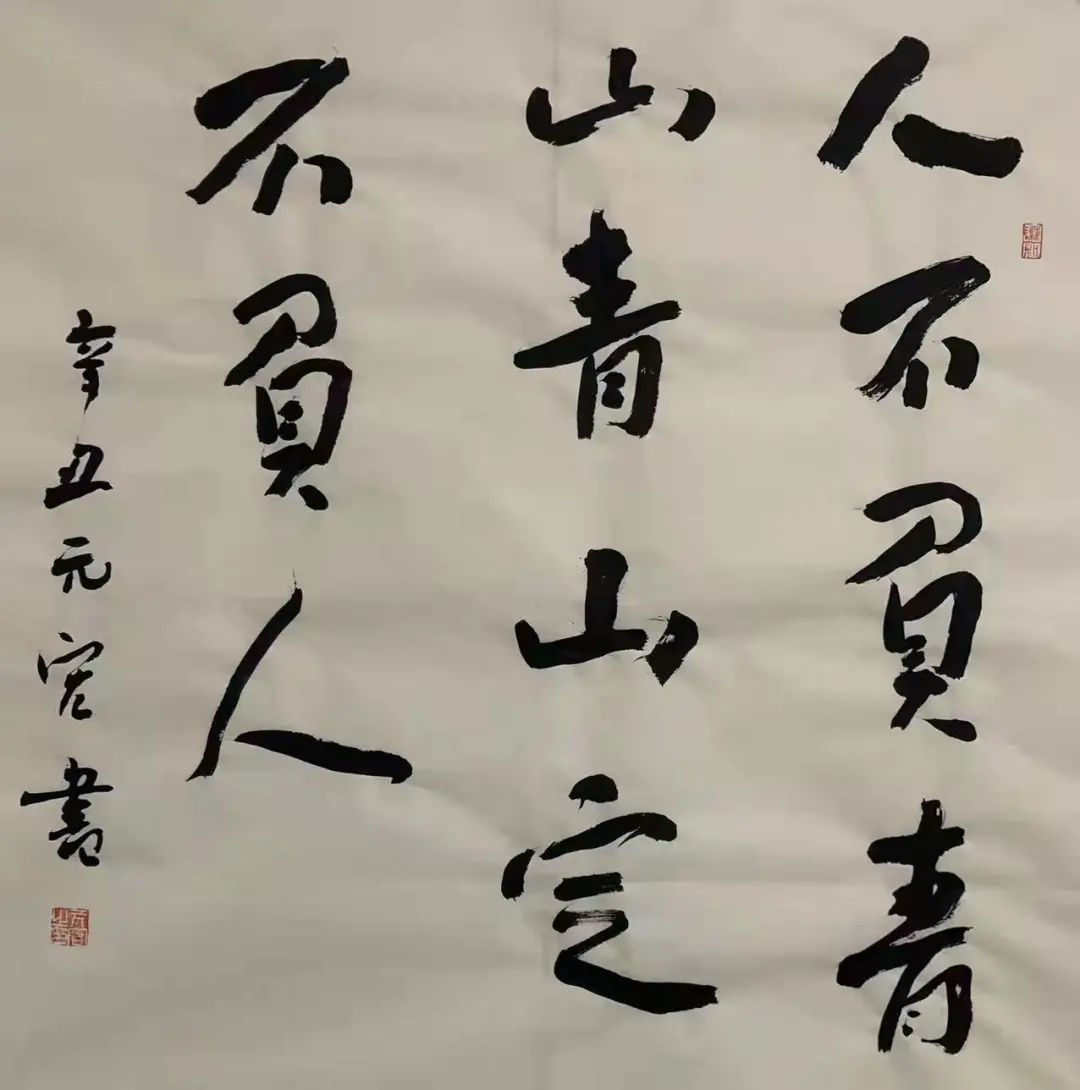 人不負青
山青山定
不負人
辛丑元宏書